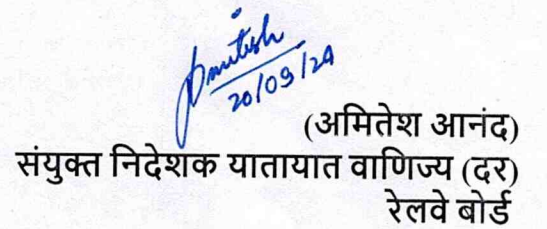 Amitesh
20/09/24
(अमितेश आनंद)
संयुक्त निदेशक यातायात वाणिज्य (दर)
रेलवे बोर्ड